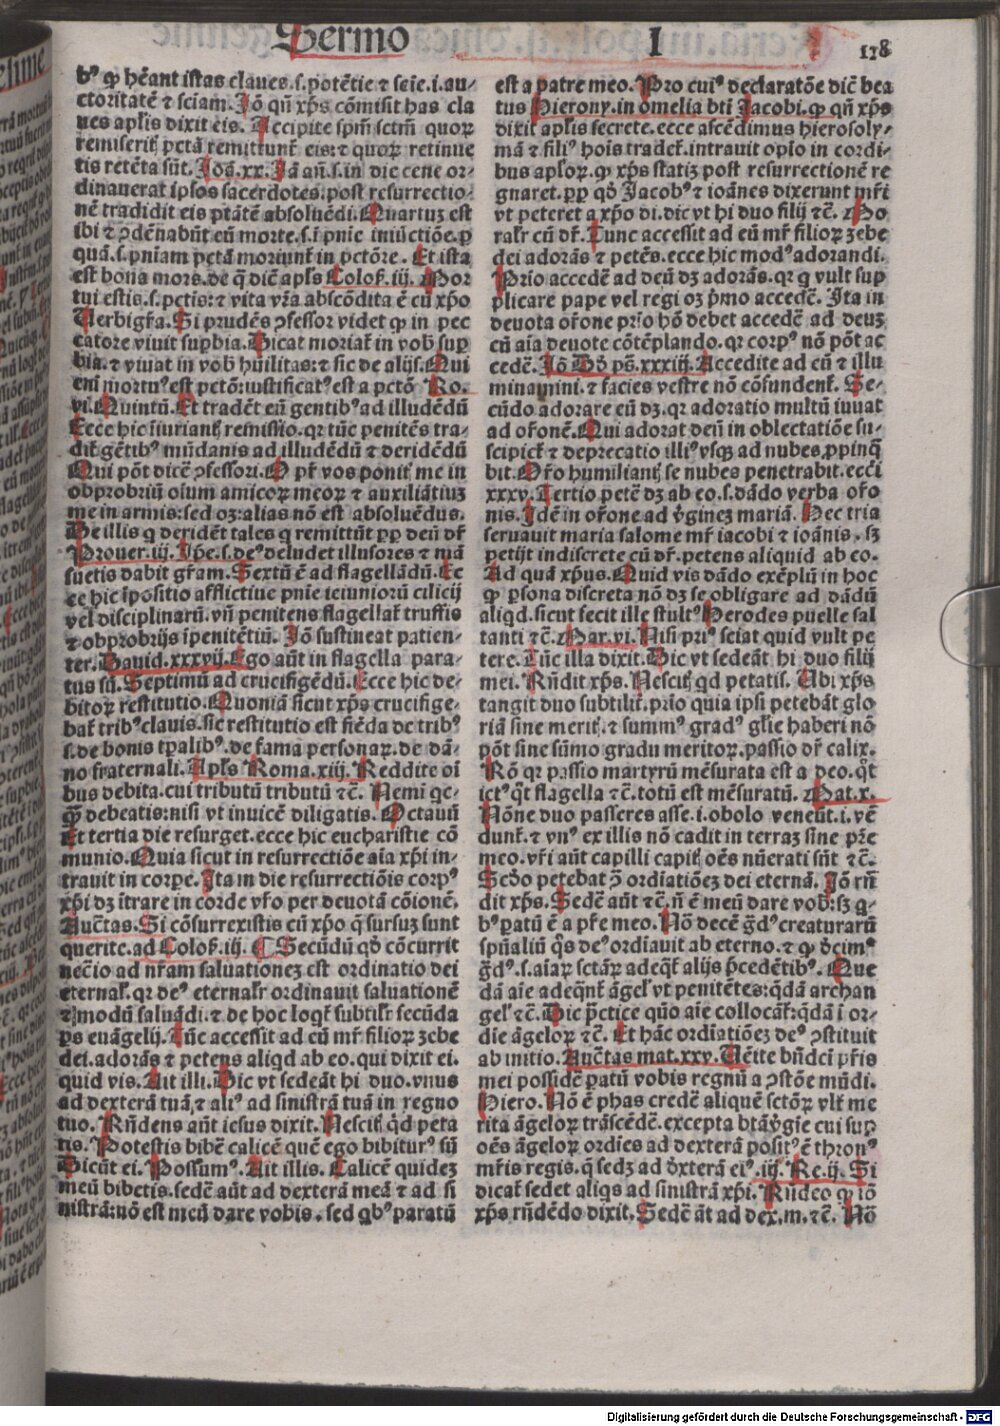 Sermo I 128
bꝰ ꝙ hẽant istas claues.s.potẽtie ⁊ sciẽ.i.au-
ctoritatẽ ⁊ sciam. Jõ qñ xp̃s cõmisit has cla
ues apl̃is dixit eis. Accipite sp̃m sctm̃ quoꝝ
remiserit̃ pctã remittunt̃ eis: ⁊ quoꝝ retinue
tis retẽta sũt. Joã.xx. Jã añ.s.in die cene or-
dinauerat ipsos sacerdotes: post resurrectio-
nẽ tradidit eis ptãtẽ absoluẽdi. Quartuꝫ est
ibi ⁊ ꝯdẽnabũt eũ morte.s.i pñie iniũctiõe.ꝑ
quã.s.pñiam pctã moriunt̃ in pctõre. Et ista
est bona mors.de q̃ dic̃ apl̃s Coloss.iij. Mor
tui estis.s.pctis: ⁊ vita vr̃a abscõdita ẽ cũ xp̃o
Uerbigr̃a. Si prudẽs ꝯfessor videt ꝙ in pec
catore viuit supbia. Dicat moriat̃ in vob̃ suꝑ
bia. ⁊ viuat in vob̃ huilitas: ⁊ sic de alijs. Qui
eni mortuꝰ est pctõ: iustificatꝰ est a pctõ Ro.
vi. Quintũ. Et tradẽt eũ gentibꝰ ad illudẽdũ
Ecce hic iiuriant̃ remissio.qꝛ tũc penitẽs tra-
dit̃ gẽtibꝰ mũdanis ad illudẽdũ ⁊ deridẽdũ
Qui põt dicẽ ꝯfessori. O pr̃ vos ponit̃ me in
obprobriũ oium amicoꝝ meoꝝ ⁊ auxiliãtiuꝫ
me in armis: sed oꝫ: alias nõ est absoluẽdus.
De illis q̃ deridẽt tales q̃ remittũt ꝓp deũ dr̃
Prouer.iij. Ipẽ.s.deꝰ deludet illusores ⁊ mã
suetis dabit gr̃am. Sextũ ẽ ad flagellãdũ. Ec
ce hic ĩpositio afflictiue pñie ieiuniorũ cilicij
vel disciplinarũ.vñ penitens flagellat̃ truffis
⁊ obprobrijs ĩpenitẽtiũ. Jõ sustineat patien-
ter. Dauid.xxxvij. Ego aũt in flagella para-
tus sũ. Septimũ ad crucifigẽdũ. Ecce hic de-
bitoꝝ restitutio. Quoniã sicut xp̃s crucifige-
bat̃ tribꝰ clauis. sic restitutio est fiẽda de tribꝰ
s.de bonis tp̃alibꝰ.de fama personaꝝ.de dã-
no fraternali. Apl̃s Roma.xiij. Reddite oĩ
bus debita.cui tributũ tributũ ⁊c̃. Nemi qc̃-
q̃ debeatis: nisi vt inuicẽ diligatis. Octauũ
Et tertia die resurget. ecce hic eucharistie cõ
munio. Quia sicut in resurrectiõe aĩa xp̃i in-
trauit in corpe. Ita in die resurrectiõis corpꝰ
xp̃i dꝫ ĩtrare in corde vr̃o per deuotã cõionẽ.
Auctas. Si cõsurrexistis cũ xp̃o q̃ sursuꝫ sunt
querite.ad Coloss.iij. ¶ Secũdũ qd̃ cõcurrit
nec̃io ad nr̃am saluationeꝫ est ordinatio dei
eternal̃.qꝛ deꝰ eternalr̃ ordinauit saluationẽ
⁊ modũ saluãdi. ⁊ de hoc loqt̃ subtilr̃ secũda
ꝑs euãgelij. Tũc accessit ad eũ mr̃ filioꝝ zebe
dei.adorãs ⁊ petens aliqd ab eo. qui dixit ei.
quid vis. Ait illi. Dic vt sedeãt hi duo. vnus
ad dexterã tuã ⁊ aliꝰ ad sinistrã tuã in regno
tuo. Rñdens aũt iesus dixit. Nescit̃ qd̃ peta
tis. Potestis bibẽ calicẽ quẽ ego bibiturꝰ sũ
Dicũt ei. Possumꝰ. Ait illis. Calicẽ quideꝫ
meũ bibetis.sedẽ aũt ad dexterã meã ⁊ ad si
nistrã: nõ est meũ dare vobis. sed qbꝰ paratũ
est a patre meo. Pro cuiꝰ declaratõe dic̃ bea
tus Hierony.in omelia bti Jacobi.ꝙ qñ xp̃s
dixit apl̃is secrete. ecce ascẽdimus hierosoly-
mã ⁊ filiꝰ hois tradet̃.intrauit opio in cordi-
bus apl̃oꝝ.ꝙ xp̃s statiꝫ post resurrectionẽ re
gnaret.ꝓp qd̃ Jacobꝰ ⁊ ioãnes dixerunt mr̃i
vt peteret a xp̃o di.dic vt hi duo filij ⁊c̃. Mo
ralr̃ cũ dr̃. Tunc accessit ad eũ mr̃ filioꝝ zebe
dei adorãs ⁊ petẽs. ecce hic modꝰ adorandi.
Prio accedẽ ad deũ dꝫ adorãs.qꝛ q̃ vult sup
plicare pape vel regi oꝫ p̃mo accedẽ. Ita in
deuota or̃one prio hõ debet accedẽ ad deuꝫ
cũ aĩa deuote cõtẽplando.qꝛ corpꝰ nõ põt ac
cedẽ. Jõ Dd̃ ps̃.xxxiij. Accedite ad eũ ⁊ illu
minamini.⁊ facies vestre nõ cõfundent̃. Se-
cũdo adorare eũ dꝫ.qꝛ adoratio multũ iuuat
ad or̃onẽ. Qui adorat deũ in oblectatiõe su-
scipiet̃ ⁊ deprecatio illiꝰ vsqꝫ ad nubes ꝓpinq̃
bit. Or̃o humiliant̃ se nubes penetrabit. ecci
xxxv. Tertio petẽ dꝫ ab eo.s.dãdo verba or̃o
nis. Idẽ in or̃one ad v̓gineꝫ mariã. Hec tria
seruauit maria salome mr̃ iacobi ⁊ ioãnis. sꝫ
petijt indiscrete cũ dr̃.petens aliquid ab eo.
Ad quã xp̃us. Quid vis dãdo exẽplũ in hoc
ꝙ ꝑsona discreta nõ dꝫ se obligare ad dãdũ
aliqd. sicut fecit ille stultꝰ Herodes puelle sal
tanti ⁊c̃. Mar.vi. Nisi priꝰ sciat quid vult pe
tere. Tũc illa dixit. Dic vt sedeãt hi duo filij
mei. Rñdit xp̃s. Nescit̃ qd petatis. Ubi xp̃s
tangit duo subtilit̃.prio quia ipsi petebãt glo
riã sine merit̃.⁊ summꝰ gradꝰ glie haberi nõ
põt sine sũmo gradu meritoꝝ.passio dr̃ calix.
Rõ qꝛ passio martyrũ mẽsurata est a deo.q̃t
ictꝰ q̃t flagella ⁊c̃.totũ est mẽsuratũ. Mat.x.
Nõne duo passeres asse.i.obolo veneũt.i.vẽ
dunt̃.⁊ vnꝰ ex illis nõ cadit in terraꝫ sine pr̃e
meo. vr̃i aũt capilli capit̃ oẽs nũerati sũt ⁊c̃.
Scd̃o petebat ꝯ̃ ordiatiõeꝫ dei eternã. Jõ rñ
dit xp̃s. Sedẽ aũt ⁊c̃.ñ ẽ meũ dare vob̃: sꝫ q-
bꝰ patũ ẽ a pr̃e meo. Nõ decẽ g̃dꝰ creaturarũ
sp̃ualiũ q̃s deꝰ ordiauit ab eterno.⁊ ꝙ d̓cimꝰ
g̃dꝰ.s.aĩaꝝ sctãꝝ adeqt̃ alijs p̃cedẽtibꝰ. Que
dã aĩe adeqñt̃ ãgel̃ vt penitẽtes: q̃dã archan
gel̃ ⁊c̃. Dic p̃ctice quõ aĩe collocãt̃: q̃dã i or-
die ãgeloꝝ ⁊c̃. Et hãc ordiatiõeꝫ deꝰ ꝯstituit
ab initio. Auctas mat.xxv. Uẽite bñdci pr̃is
mei possidẽ patũ vobis regnũ a ꝯstõe mũdi.
Hiero. Nõ ẽ phas credẽ aliquẽ sctõꝝ vlt̃ me
rita ãgeloꝝ trãscẽdẽ.excepta btãv̓gĩe cui sup
oẽs ãgeloꝝ ordies ad dexterã positꝰ ẽ thronꝰ
mr̃is regis.q̃ sedꝫ ad d̓xterã eiꝰ.iij. Re.ij. Si
dicat̃ sedet aliqs ad sinistrã xp̃i. Rñdeo ꝙ iõ
xp̃s rñdẽdo dixit. Sedẽ ãt ad dex.m.⁊c̃. Nõ
Digitalisierung gefördert durch die Deutsche Forschungsgemeinschaft - DFG